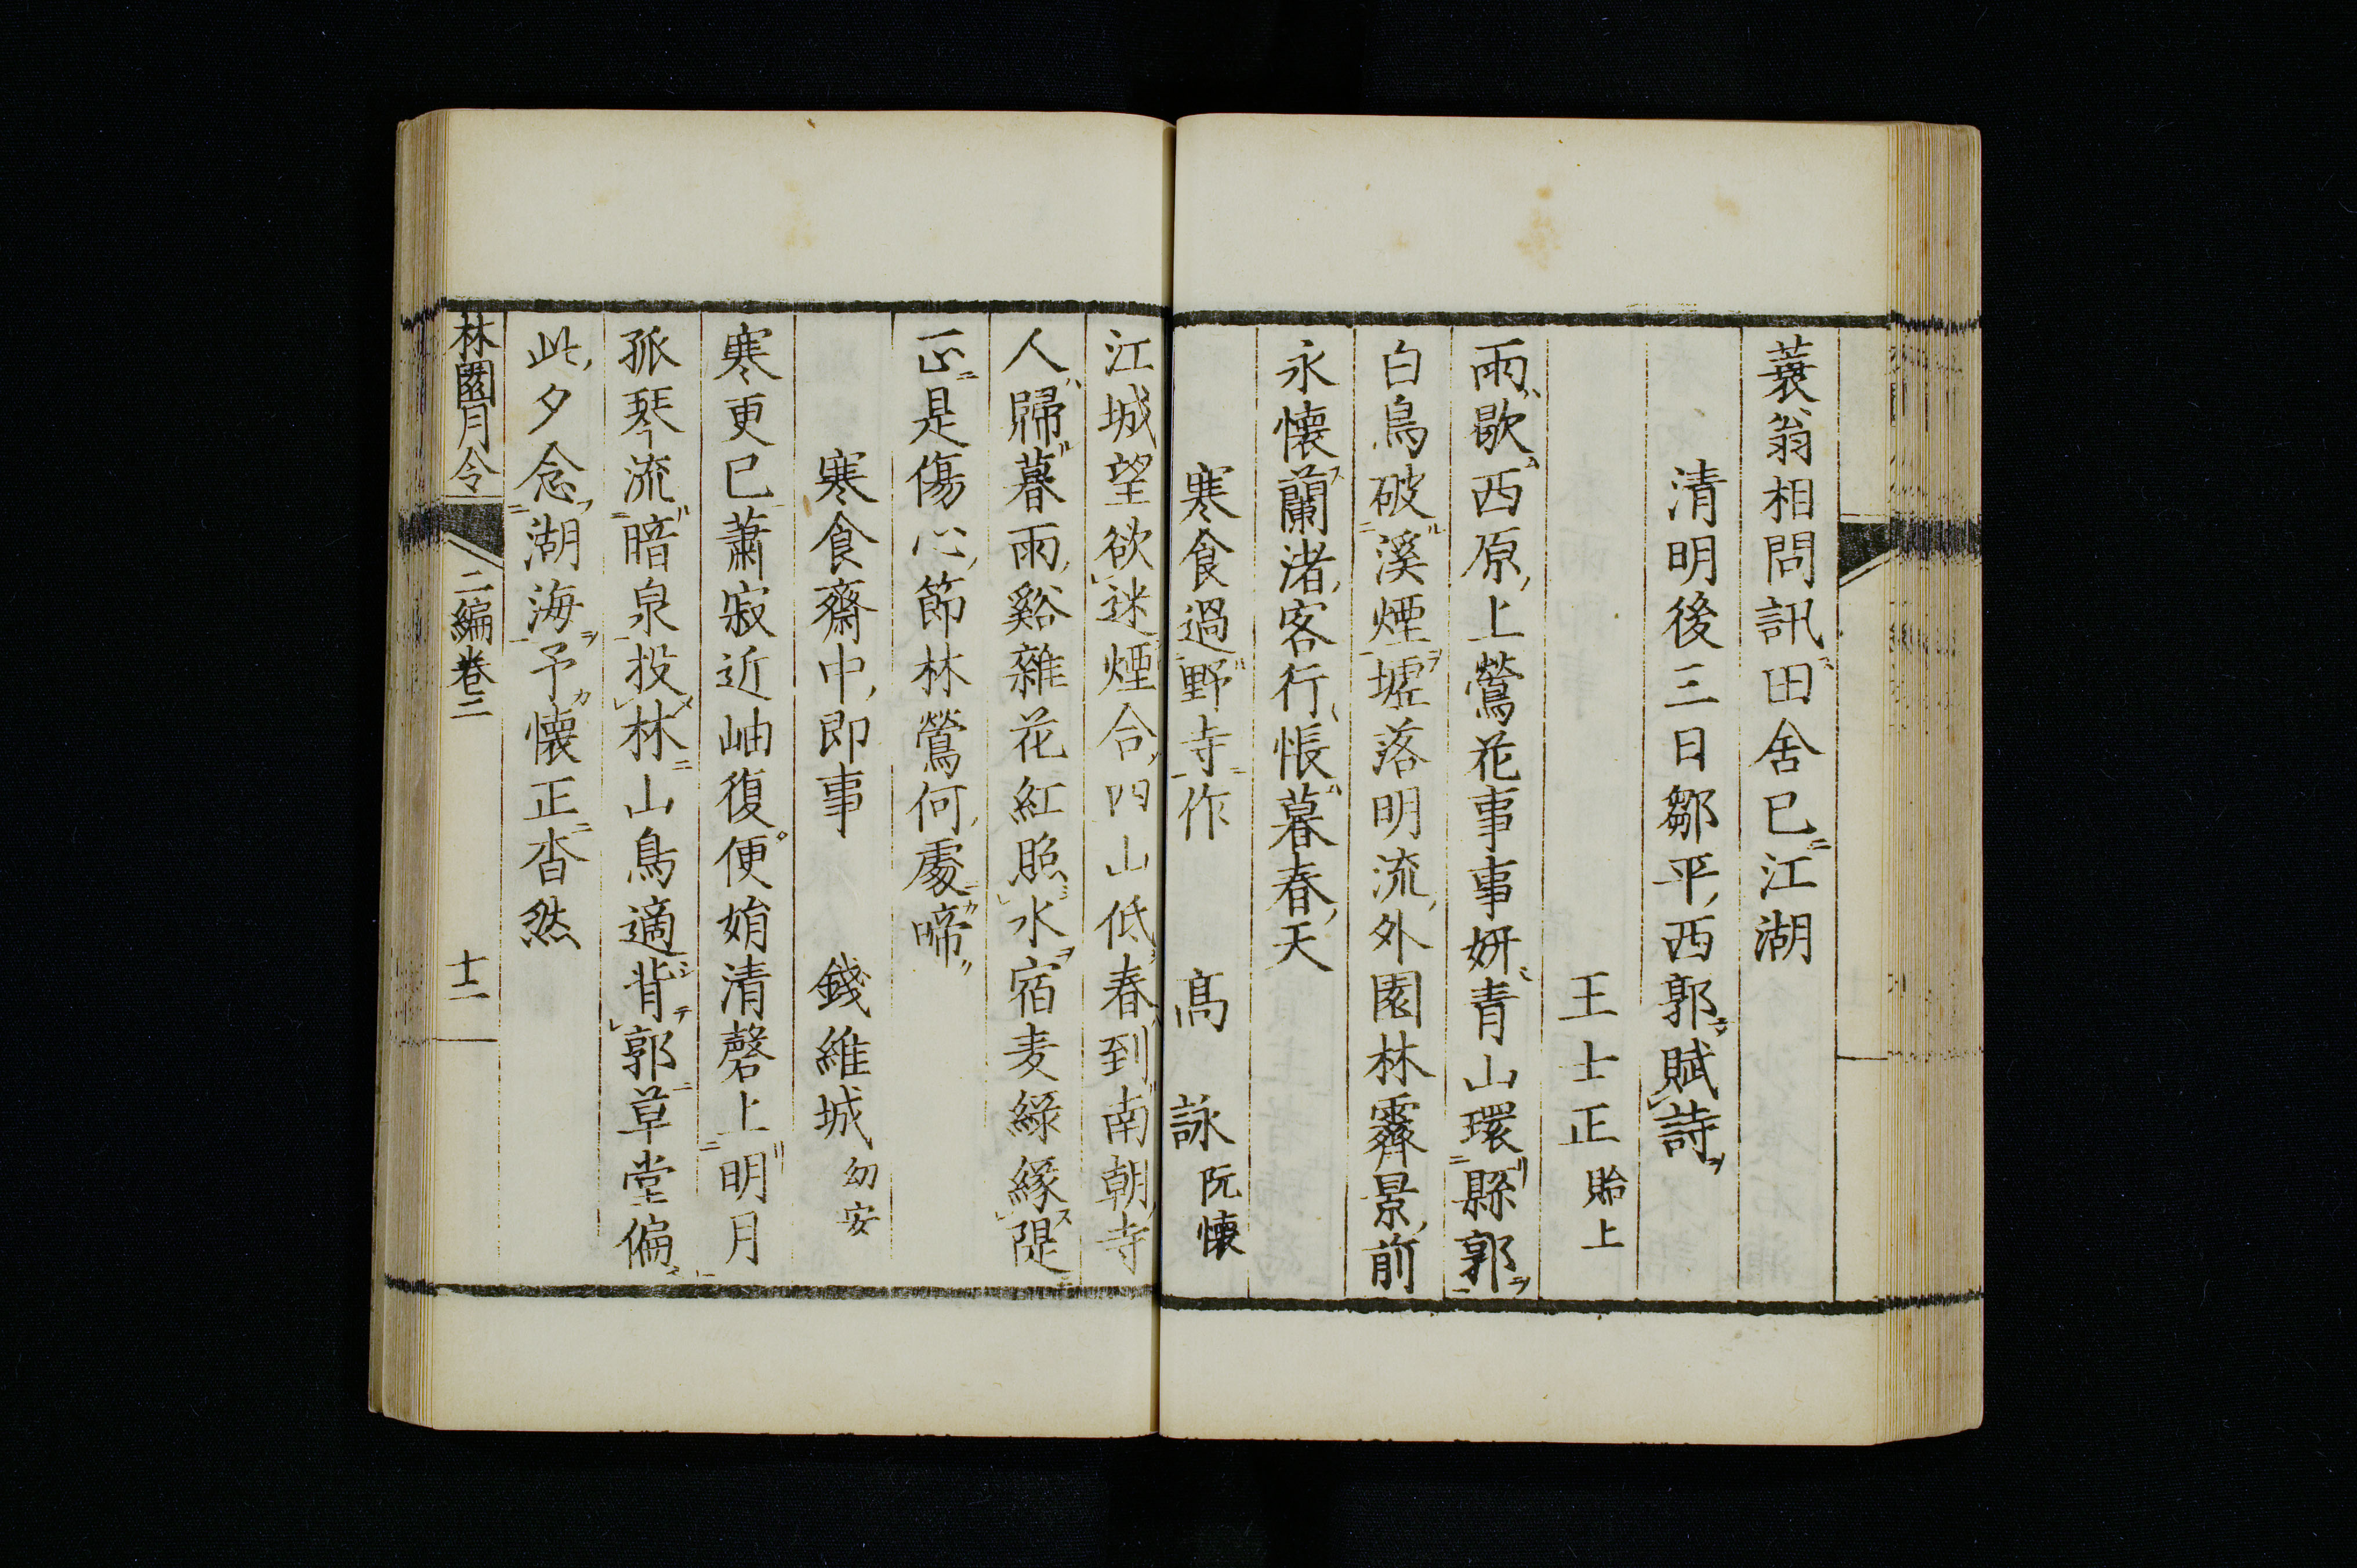 蓑翁相問訊田舍已江湖
清明後三日鄒平西郭賦詩
王士正 貽上
雨歇西原上鶯花事事妍青山環縣郭
白鳥破溪煙墟落明流外園林霽景前
永懷蘭渚客行悵暮春天
寒食過野寺作 高詠 阮懷
江城望欲迷煙合四山低春到南朝寺
人歸暮雨谿雜花紅照水宿麦綠緣隄
正是傷心節林鶯何處啼
寒食齋中即事 錢維城 幼安
寒更已蕭寂近岫復便娟清磬上明月
孤琴流暗泉投林山鳥適背郭草堂偏
此夕念湖海予懷正杳然
林園月令 二編卷三 十二